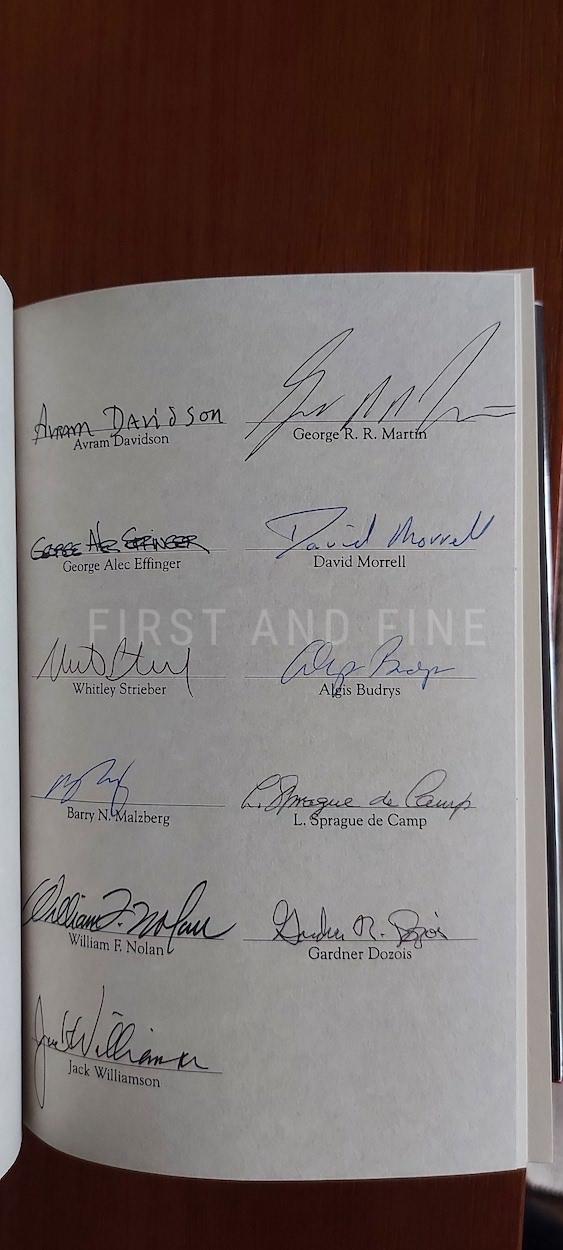 Avram Davidson
Avram Davidson
George R. R. Martin
George Alec Effinger
George Alec Effinger
David Morrell
David Morrell
FIRST AND FINE
Whitley Strieber
Algis Budrys
Algis Budrys
Barry N. Malzberg
L. Sprague de Camp
L. Sprague de Camp
William F. Nolan
William F. Nolan
Gardner R. Dozois
Gardner Dozois
Jack Williamson
Jack Williamson